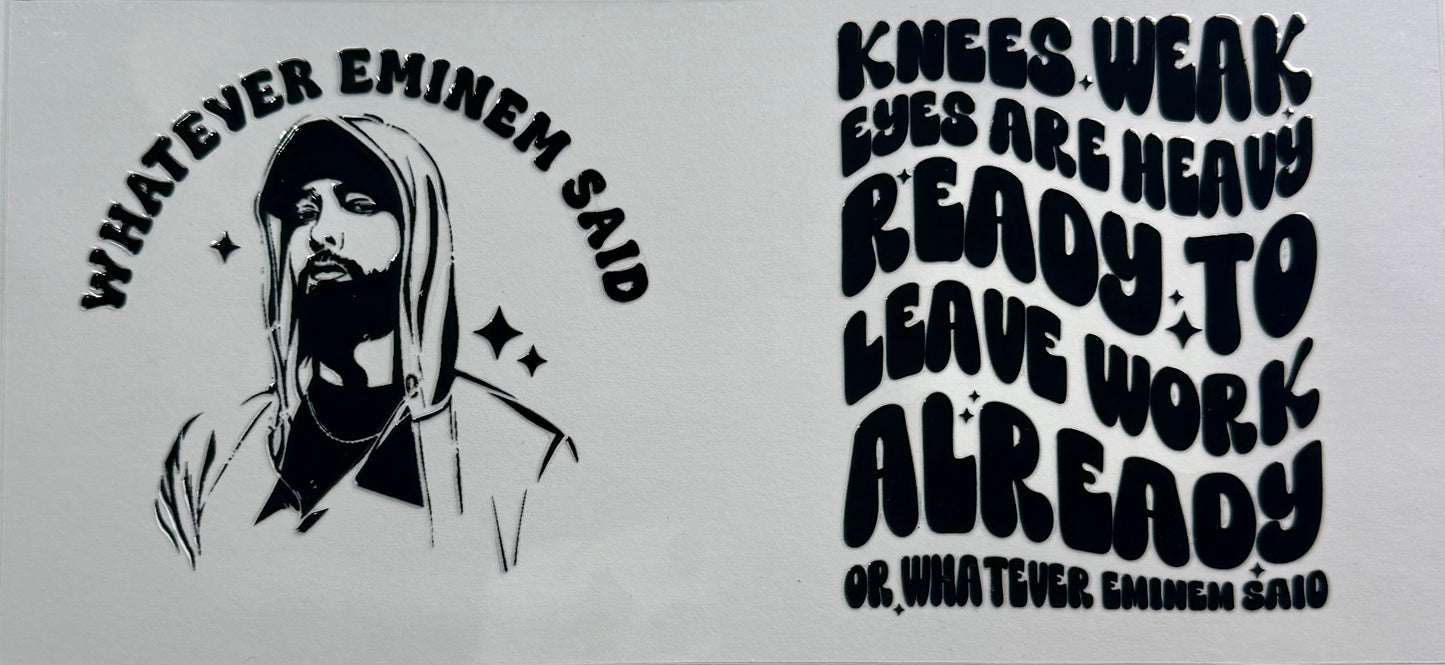 WHATEVER EMINEM SAID
KNEES WEAK
EYES ARE HEAVY
READY TO
LEAVE WORK
ALREADY
OR WHATEVER EMINEM SAID